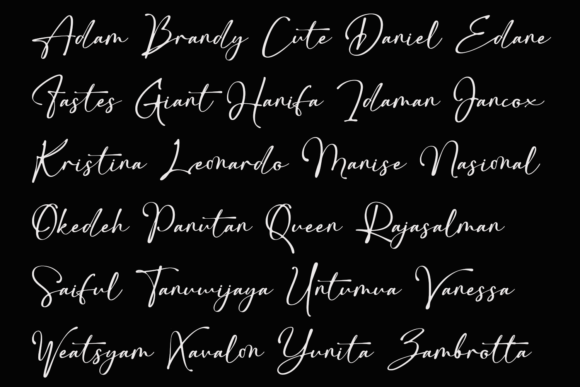 Adam Brandy Cute Daniel Edane
Fastes Giant Hanifa Idaman Jancox
Kristina Leonardo Manise Nasional
Okedeh Panutan Queen Rajasalman
Saiful Tanuwijaya Untumua Vanessa
Weatsyam Xavalon Yunita Zambrotta